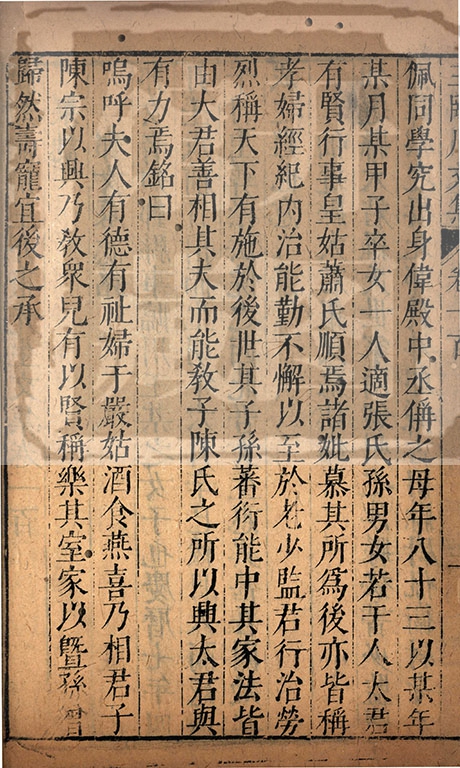 佩同學究出身偉殿中丞偁之母年八十三以某年
某月某甲子卒女一人適張氏孫男女若干人太君
有賢行事皇姑蕭氏順焉諸妣慕其所爲後亦皆稱
孝婦經紀内治能勤不懈以至於老少監君行治勞
烈稱天下有施於後世其子孫蕃衍能中其家法皆
由大君善相其夫而能敎子陳氏之所以興太君與
有力焉銘曰
嗚呼夫人有德有祉婦于嚴姑酒食燕喜乃相君子
陳宗以興乃敎衆兒有以賢稱樂其室家以曁孫曾
歸然壽寵宜後之承